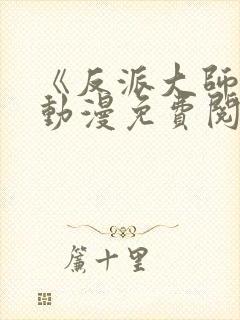 《反派大師
動漫免費閱
簾十里